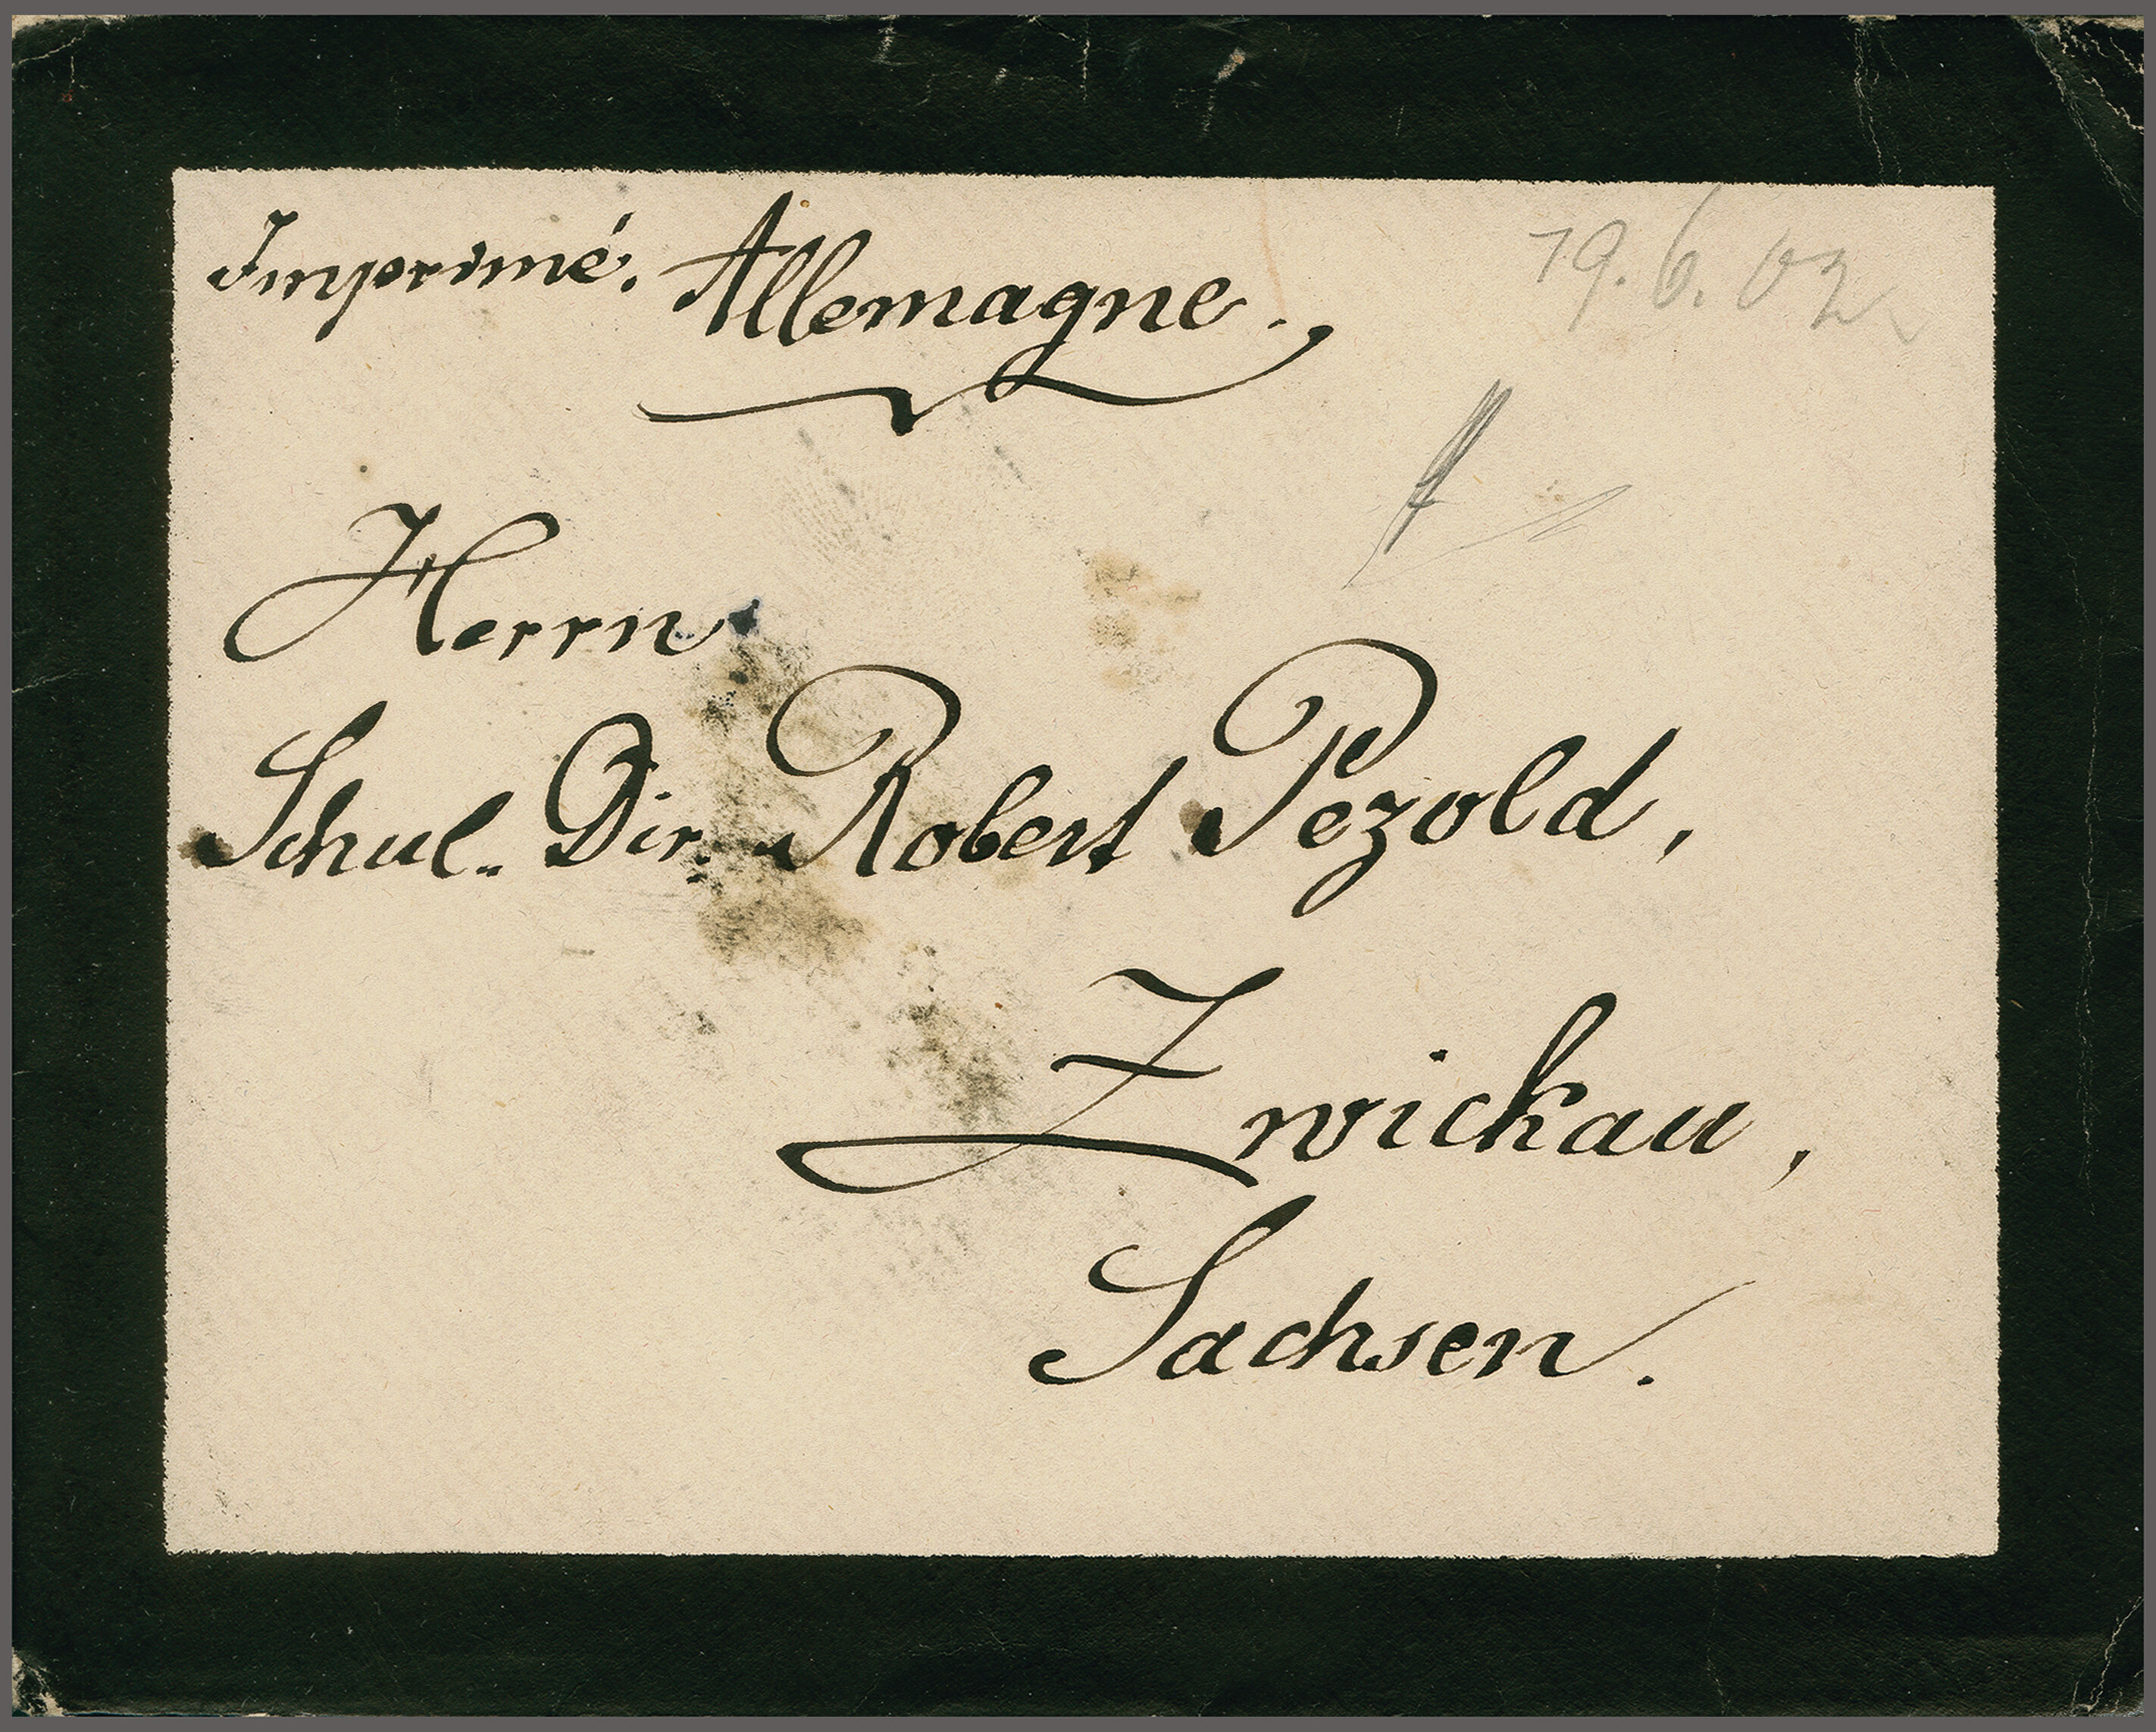 Imprimé. Allemagne.
19.6.02
Herrn
Schul. Dir. Robert Pezold,
Zwickau,
Sachsen.